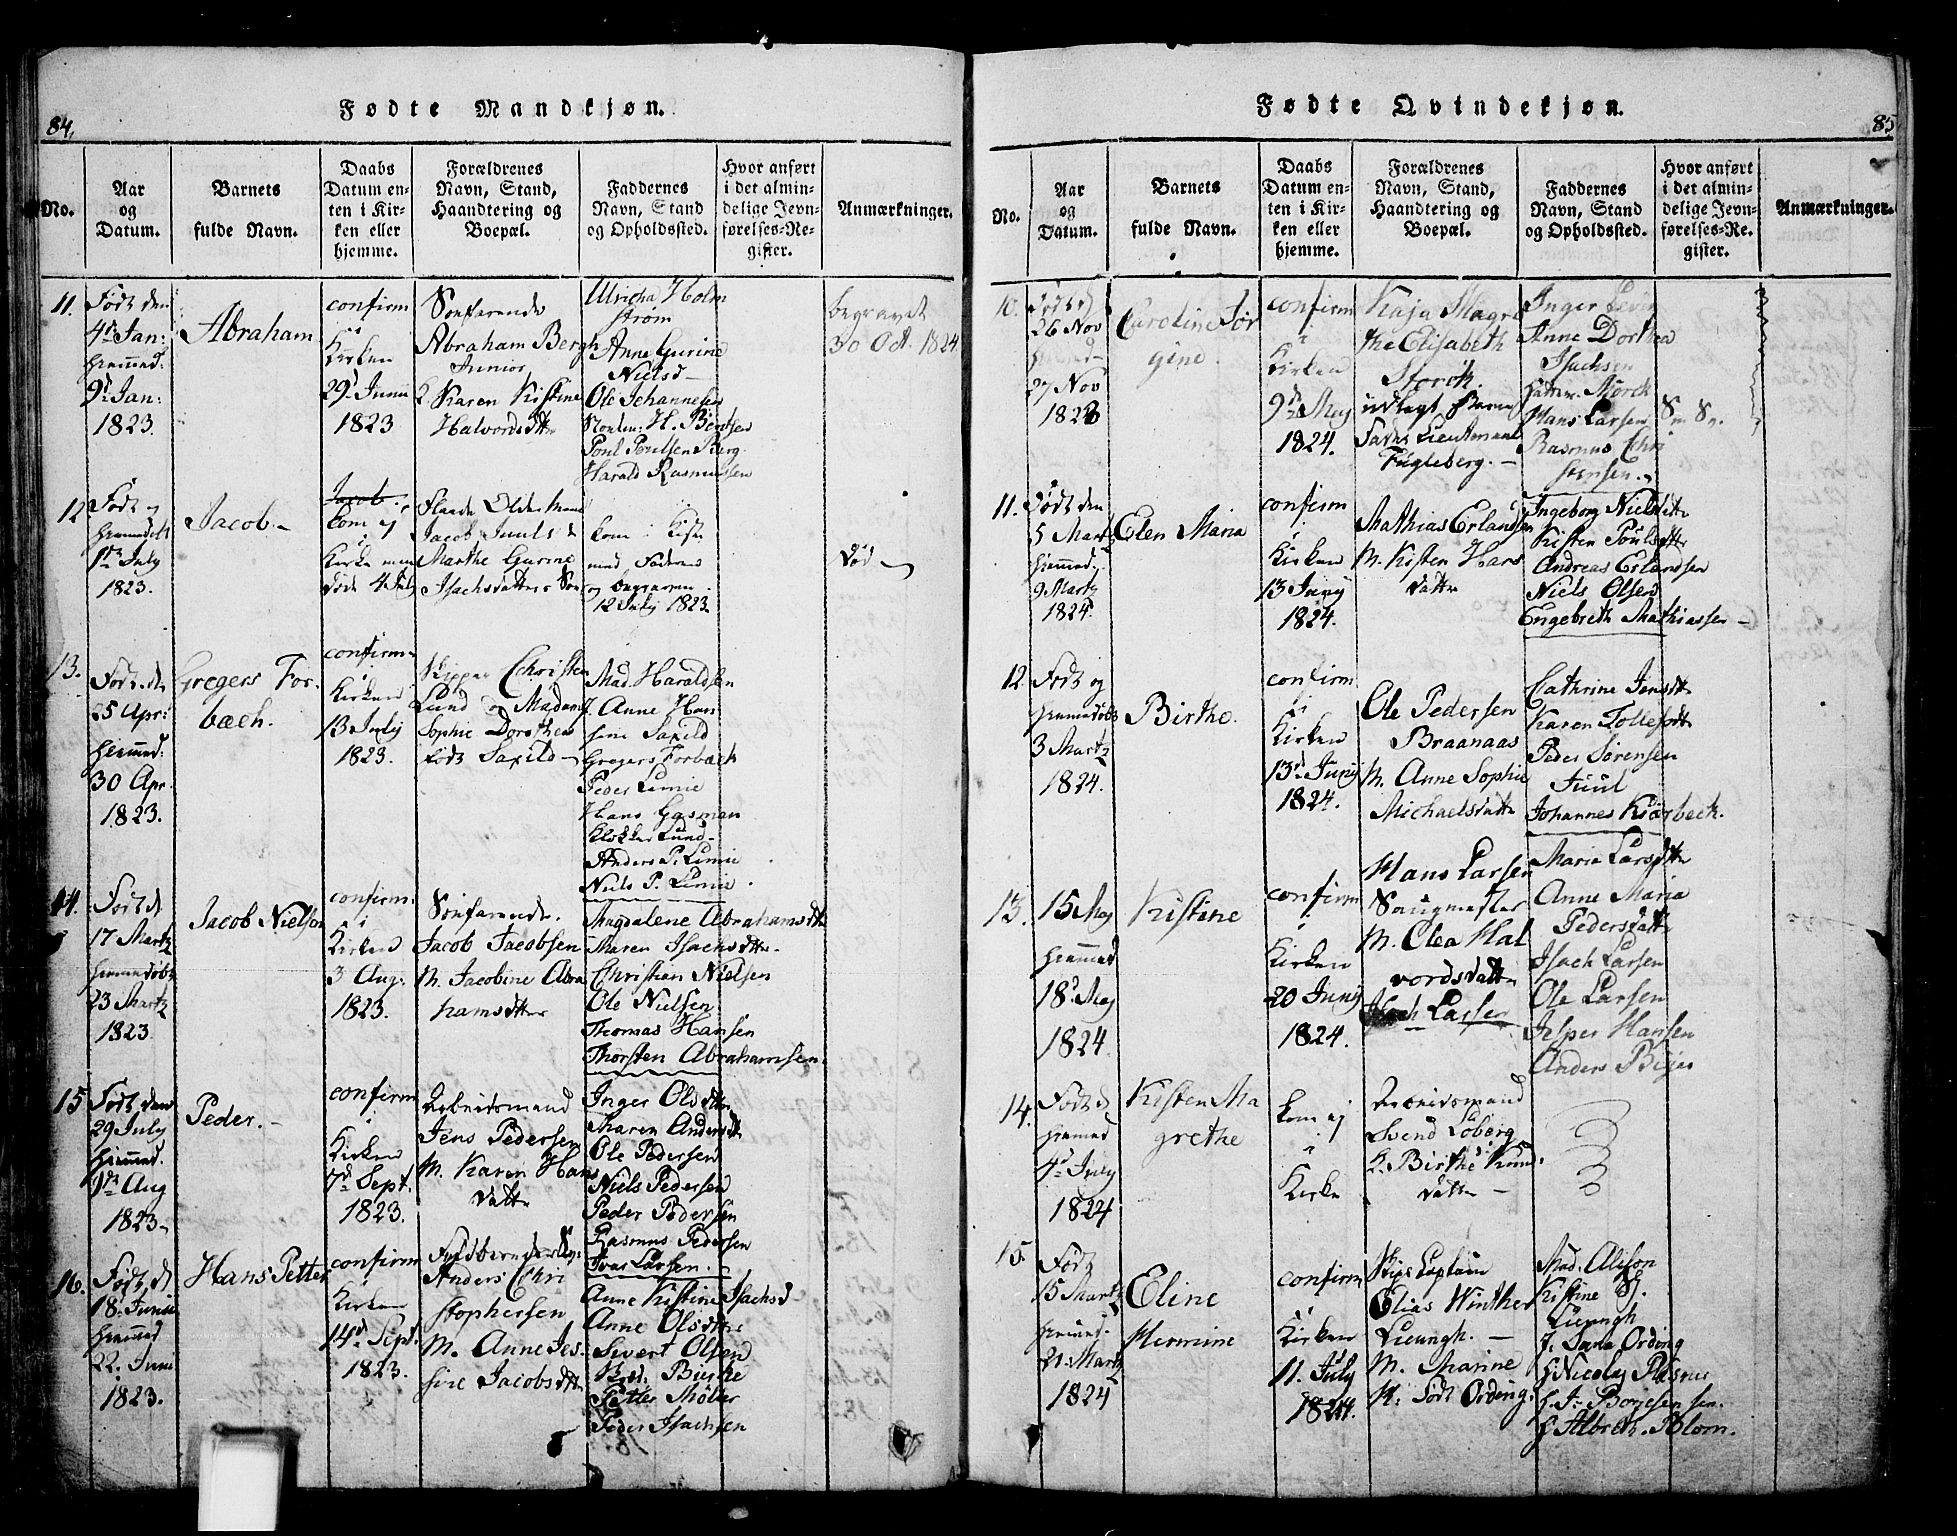 84.
Fødte Mandkjøn.
No.
Aar
og
Datum.
Barnets
fulde Navn.
Daabs
Datum en-
ten i Kir-
ken eller
hjemme.
Forældrenes
Navn, Stand,
Haandtering og
Boepæl.
Faddernes
Navn, Stand
og Opholdssted.
Hvor anført
i det almin-
delige Jevn-
førelses-Re-
gister.
Anmærkninger.
11.
Født den
4de Jan:
hiemmed:
9d Jan:
1823.
Abraham
confirm
i
Kirken
29d Junii
1823
Søefarende
Abraham Bergh
Junior
& Karen Kistine
Halvordsdtter
Ulricha Holm
strøm
Anne Gurine
Nielsd
Ole Johannesen
H. Bentsen
Poul Poulsen Berg
Harald Rasmussen
begravet
30 Oct. 1824
12
Født og
hiemmedøbt
1ste July
1823.
Jacob
kom ej
i
Kirke men
døde 4 July
Jacob Juuls &
Marthe Gurine
Isachsdatters Søn
kom i Kiste
med Faderen
og begraven
12 July 1823.
Død
13.
Født de
25 Apr:
hiemmed:
30 Apr.
1823.
Gregers For-
bech.
confirm
i
Kirken
13 July
1823.
Skipper Christen
Lund og Madam
Sophie Dorothea
født Saxild
Mad. Haraldsen
J. Anne Han
sine Saxild
Gregers Forbech
Peder Limie
Hans Gasman
Klokker Lund
Anders P. Limie
Niels P. Limie
14.
Født d
17 Martz
hiemmedøbt
23 Martz
1823
Jacob Nielsen
confirm
i
Kirken
3 Aug:
1823.
Søefarende
Jacob Jacobsen
M. Jacobine Abra
hamsdtter
Magdalene Abrahamsdtter
Maren Isachsdtter
Christian Nielsen
Ole Nielsen
Thomas Hansen
Thorsten Abrahamsen
15
Født den
29 July
hiemmed.
1ste Aug
1823
Peder.
confirm
i
Kirken
7d Sept.
1823.
Arbeidsmand
Jens Pedersen
M. Karen Hans
datter
Inger Olsdtter
Maren Andersdt
Ole Pedersen
Niels Pedersen
Peder Pedersen
Rasmus Pedersen
Ivar Larsen
16.
Født d
18. Junii
hiemmed
22. Juni
1823.
Hans Petter
confirm
i
Kirken
14d Sept
1823.
Anders Chri
stophersen
M. Anne Jes-
sine Jacobsdtter
Anne Kistine Isachsd
Anne Olsdtter
Sivert Olsen
Petter Møller
Peder Isachsen
85
Fødte Qvindekjøn.
No.
Aar
og
Datum.
Barnets
fulde Navn.
Daabs
Datum en-
ten i Kir-
ken eller
hjemme.
Forældrenes
Navn, Stand,
Haandtering og
Boepæl.
Faddernes
Navn, Stand
og Opholdssted.
Hvor anført
i det almin-
delige Jevn-
førelses-Re-
gister.
Anmærkninger.
10.
Født d
26 Nov
hiemmed
27 Nov
1823
Caroline Jør
gine.
confirm
i
Kirken
9d Maj
1824.
Kaja Magre
the Elisabeth
Storck.
udlagt Barne
Fader Lieutenant
Fugleberg.
Inger
Anne Dorthea
Isachsen
Storck
Hans Larsen
Rasmus Chri
stensen.
11.
Født den
5 Martz
hiemmed.
9 Martz
1824
Elen Maria
confirm
i
Kirken
13 Junij
1824.
Mathias Erlandsen
M. Kisten Hans
datter
Ingeborg Nielsdtter
Kisten Poulsdtter
Andreas Erlandsen
Niels Olsen
Engebreth Mathiassen
12.
Født og
hiemmedøbt
3 Martz
1824.
Birthe.
confirm
i
Kirken
13d Junij
1824.
Ole Pedersen
Braanaas
M. Anne Sophie
Michaelsdatter
Cathrine Jensdtter
Karen Tollefsdtter
Peder Sørensen
Juul
Johannes Kiørbech.
13.
15 Maj
hiemmed
18d Maj
1824.
Kistine
confirm
i
Kirken
20 Junij
1824.
Hans Larsen
Saugmester
M. Olea Hal
vordsdatter
Isach Larsen
Marie Larsdtter
Anne Maria
Pedersdatter
Isach Larsen
Ole Larsen
Jesper Hansen
Anders Beyer
14.
Født d
hiemmed
4d July
1824
Kisten Ma
grethe
kom ej
i
Kirke
Arbeidsmand
Svend Loberg
K. Birthe Knud-
datter
15.
Født
15 Martz
hiemmed.
21. Martz
1824
Eline
Hermine
confirm
i
Kirken
11. July
1824.
Skips Captain
Elias Winther
Lieungh.
M. Marine
M. født Ording.
Mad. Alison
Kistine S.
Lieungh
J. Sara Ording
H Nicolaj Plesner
H. J. Borgesen sen.
H Albreth. Blom.